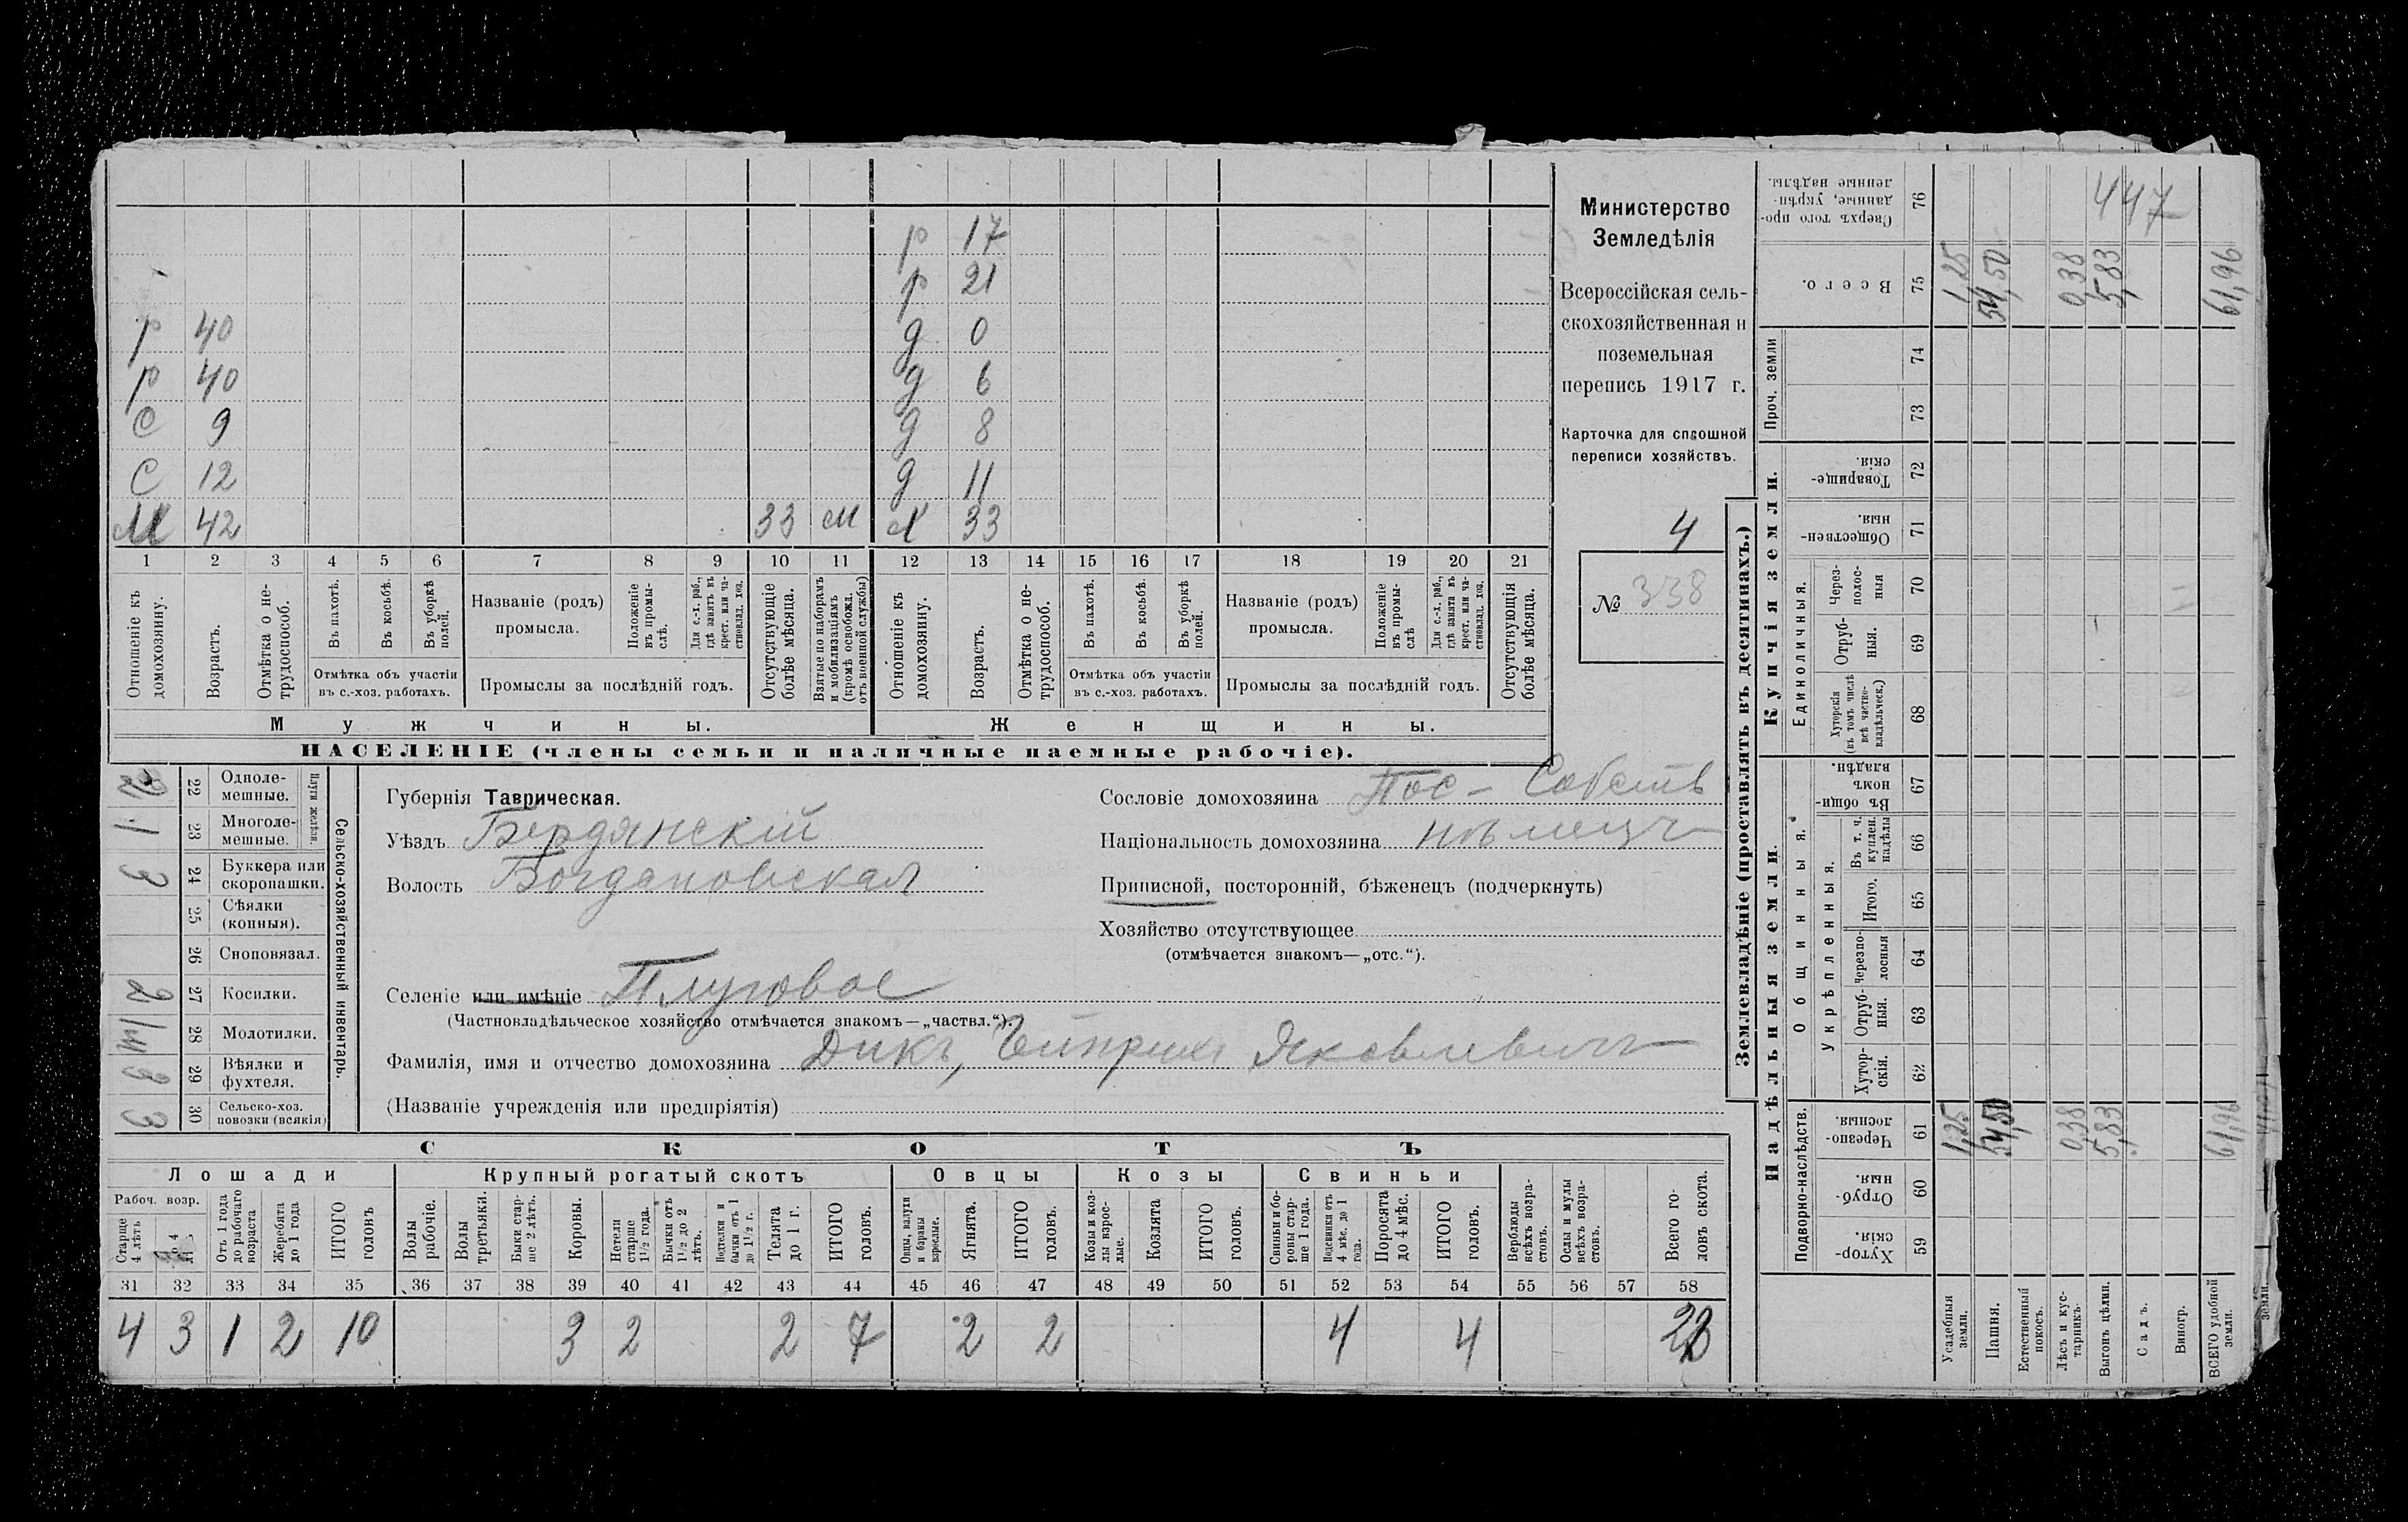 р 17
р 21
р 40 д 0
р 40 д 6
с 9 д 8
с 12 д 11
М 42 33 м Х 33
1 2 3 4 5 6 7 8 9 10 11 12 13 14 15 16 17 18 19 20 21
Отношеніе къ домохозяину.
Возрастъ.
Отмѣтка о нетрудоспособ.
Въ пахотѣ.
Въ косьбѣ.
Въ уборкѣ полей.
Отмѣтка объ участіи
въ с.-хоз. работахъ.
Названіе (родъ)
промысла.
Положеніе въ промыслѣ.
Для с.-х. раб., гдѣ занятъ въ крест. или частновлад. хоз.
Промыслы за послѣдній годъ.
Отсутствующіе болѣе мѣсяца.
Взятые по наборамъ и мобилизаціямъ (кромѣ освобожд. отъ военной службы)
Отношеніе къ домохозяину.
Возрастъ.
Отмѣтка о нетрудоспособ.
Въ пахотѣ.
Въ косьбѣ.
Въ уборкѣ полей.
Отмѣтка объ участіи
въ с.-хоз. работахъ.
Названіе (родъ)
промысла.
Положеніе въ промыслѣ
Для с.-х. раб., гдѣ занята въ крест. или частновлад. хоз.
Промыслы за послѣдній годъ.
Отсутствующія болѣе мѣсяца.
Мужчины.
Женщины.
НАСЕЛЕНІЕ (члены семьи и наличные наемные рабочіе).
Министерство
Земледѣлія
Всероссійская сель-
скохозяйственная и
поземельная
перепись 1917 г.
Карточка для сплошной
переписи хозяйствъ.
4
№ 338
2 22 Одноле-
мешные.
1 23 Многоле-
мешные.
Плуги желѣзн.
3 24 Буккера или
скоропашки.
25 Сѣялки
(конныя).
26 Сноповязал.
2 27 Косилки.
28 Молотилки.
3 29 Вѣялки и
фухтеля.
3 30 Сельско-хоз.
повозки (всякія)
Сельско-хозяйственный инвентарь.
Губернія Таврическая.
Уѣздъ Бердянскій
Волость Богдановская
Сословіе домохозяина Пос - Собств
Національность домохозяина нѣмецъ
Приписной, посторонній, бѣженецъ (подчеркнуть)
Хозяйство отсутствующее
(отмѣчается знакомъ—„отс.“).
Селеніе или имѣніе Плуговое
(Частновладѣльческое хозяйство отмѣчается знакомъ—„частвл.“).
Фамилія, имя и отчество домохозяина Дикъ, Гейнрихъ Яковлевичъ
(Названіе учрежденія или предпріятія)
СКОТЪ
Лошади
Крупный рогатый скотъ
Овцы
Козы
Свиньи
Рабоч. возр.
Старше 4 лѣтъ
До 4 л.
Отъ 1 года до рабочаго возраста
Жеребята до 1 года
ИТОГО головъ
Волы рабочіе.
Волы третьяки.
Быки старше 2 лѣтъ.
Коровы.
Нетели старше 1½ года.
Бычки отъ 1½ до 2 лѣтъ.
Подтелки и бычки отъ 1 до 1½ г.
Телята до 1 г.
ИТОГО головъ.
Овцы, валухи и бараны взрослые.
Ягнята.
ИТОГО головъ.
Козы и козлы взрослые.
Козлята
ИТОГО головъ.
Свиньи и боровы старше 1 года.
Подсвинки отъ 4 мѣс. до 1 года.
Поросята до 4 мѣс.
ИТОГО головъ.
Верблюды всѣхъ возрастовъ.
Ослы и мулы всѣхъ возрастовъ.
Всего головъ скота.
31 32 33 34 35 36 37 38 39 40 41 42 43 44 45 46 47 48 49 50 51 52 53 54 55 56 57 58
4 3 1 2 10 3 2 2 7 2 2 4 4 23
Землевладѣніе (проставлять въ десятинахъ.)
Надѣльныя земли.
Купчія земли.
Проч. земли
Подворно-наслѣдств.
Общинныя.
Укрѣпленныя.
Единоличныя.
Сверхъ того проданные, укрѣпленные надѣлы. 76 447
Всего. 75 1,25 54,50 0,38 5,83 61,96
74
73
Товарищескія. 72
Общественныя. 71
Черезполосныя 70
Отрубныя. 69
Хуторскія (въ томъ числѣ всѣ частновладѣльческ.) 68
Въ общинномъ владѣн. 67
Въ т. ч. куплен. надѣлы 66
Итого. 65
Черезполосныя 64
Отрубныя. 63
Хуторскія. 62
Черезполосныя. 61 1,25 54,50 0,38 5,83 61,96
Отрубныя. 60
Хуторскія. 59
Усадебныя земли.
Пашня.
Естественный покосъ.
Лѣсъ и кустарникъ.
Выгонъ цѣлин.
Садъ.
Виногр.
ВСЕГО удобной земли.
земли.